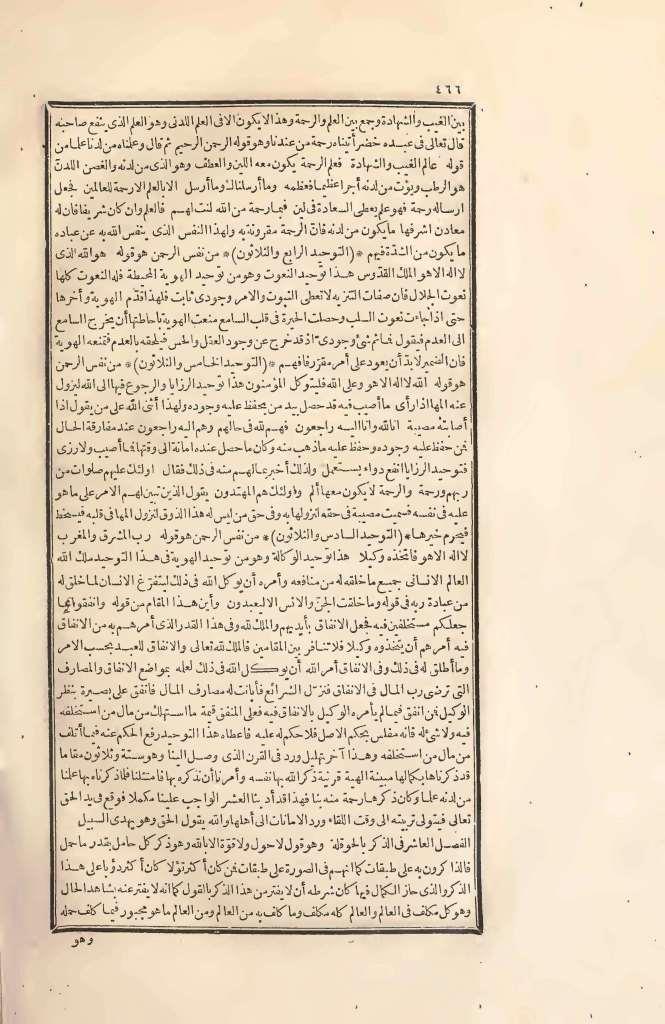 ٤٦٦
بين الغيب والشهادة وجمع بين العلم والرحمة وهذا لا يكون الا فى العلم اللدنى وهو العلم الذى ينفع صاحبه
قال تعالى فى عبده خضر آتيناه رحمة من عندنا وهو قوله الرحمن الرحيم ثم قال وعلمناه من لدنا علما من
قوله عالم الغيب والشهادة فعلم الرحمة يكون معه اللين والعطف وهو الذى من لدنه والغصن اللدن
هو الرطب ويؤت من لدنه أجرا عظيما فعظمه وما أرسلناك وما أرسل الا بالعلم الا رحمة للعالمين فجعل
ارساله رحمة فهو علم يعطى السعادة فى لين فبما رحمة من الله لنت لهم فالعلم وان كان شريفا فان له
معادن اشرفها ما يكون من لدنه فان الرحمة مقرونة به ولهذا النفس الذى ينفس الله به عن عباده
ما يكون من الشدة فيهم *(التوحيد الرابع والثلاثون)* من نفس الرحمن هو قوله هو الله الذى
لا اله الا هو الملك القدوس هذا توحيد النعوت وهو من توحيد الهوية المحيطة فله النعوت كلها
نعوت الجلال فان صفات التنزيه لا تعطى الثبوت والامر وجودى ثابت فلهذا قدّم الهوية وأخرها
حتى اذا جاءت نعوت السلب وحصلت الحيرة فى قلب السامع منعت الهوية باحاطتها أن يخرج السامع
الى العدم فيقول فما ثم شئ وجودىّ اذ قد خرج عن وجود العقل والحس فيلحقه بالعدم فتمنعه الهوية
فان الضمير لا بدّ أن يعود على أمر مقرّر فافهم *(التوحيد الخامس والثلاثون)* من نفس الرحمن
هو قوله الله لا اله الا هو وعلى الله فليتوكل المؤمنون هذا توحيد الرزايا والرجوع فيها الى الله ليزول
عنه المها اذا رأى ما أصيب فيه قد حصل بيد من يحفظ عليه وجوده ولهذا أثنى الله على من يقول اذا
أصابته مصيبة انا لله وانا اليه راجعون فهم لله فى حالهم وهم اليه راجعون عند مفارقة الحال
فمن حفظ عليه وجوده وحفظ عليه ما ذهب منه وكان ما حصل عنده امانة الى وقتها فما أصيب ولا رزى
فتوحيد الرزايا انفع دواء يستعمل ولذلك أخبر بما لهم منه فى ذلك فقال اولئك عليهم صلوات من
ربهم ورحمة والرحمة لا يكون معها ألم واولئك هم المهتدون يقول الذين تبين لهم الامر على ما هو
عليه فى نفسه فسميت مصيبة فى حقه لنزولها به وفى حق من ليس له هذا الذوق لنزول المها فى قلبه فيسخط
فيحرم خيرها *(التوحيد السادس والثلاثون)* من نفس الرحمن هو قوله رب المشرق والمغرب
لا اله الا هو فاتخذه وكيلا هذا توحيد الوكالة وهو من توحيد الهوية فى هذا التوحيد ملك الله
العالم الانسانى جميع ما خلقه له من منافعه وأمره أن يوكل الله فى ذلك ليتفرّغ الانسان لما خلق له
من عبادة ربه فى قوله وما خلقت الجنّ والانس الا ليعبدون وأين هذا المقام من قوله وانفقوا مما
جعلكم مستخلفين فيه فجعل الانفاق بأيديهم والملك لله وفى هذا القدر الذى أمرهم به من الانفاق
فيه أمرهم أن يتخذوه وكيلا فلا تنافر بين المقامين فالملك لله تعالى والانفاق للعبد بحسب الامر
وما أطلق له فى ذلك وفى الانفاق أمر الله أن يوكل الله فى ذلك لعلمه بمواضع الانفاق والمصارف
التى ترضى رب المال فى الانفاق فنزّل الشرائع فأبانت له مصارف المال فأنفق على بصيرة بنظر
الوكيل فمن انفق فيما لم يأمره الوكيل بالانفاق فيه فعلى المنفق قيمة ما استهلك من مال من استخلفه
فيه ولا شئ له فانه مفلس بحكم الاصل فلا حكم له عليه فاعطاه هذا التوحيد رفع الحكم عنه فيما أتلف
من مال من استخلفه وهذا آخر تهليل ورد فى القرن الذى وصل الينا وهو ستة وثلاثون مقاما
قد ذكرناها بكمالها مبينة الهية قرنية ذكر الله بها نفسه وأمرنا أن نذكره بها فامتثلنا فلما ذكرناه بها علمنا
من لدنه علما وكان ذكرها رحمة منه بنا فهذا قد أدّينا العشر الواجب علينا مكملا فوقع فى يد الحق
تعالى فيتولى تربيته الى وقت اللقاء وردّ الامانات الى أهلها والله يقول الحق وهو يهدى السبيل
الفصل العاشر فى الذكر بالحوقلة وهو قول لا حول ولا قوة الا بالله وهو ذكر كل حامل بقدر ما حمل
فالذاكرون به على طبقات كما انهم فى الصورة على طبقات فمن كان أكثر توٌلا كان أكثر دؤبا على هذا
الذكر والذى حاز الكمال فيها كان شرطه أن لا يفتر من هذا الذكر بالقول كما انه لا يفتر عنه بشاهد الحال
وهو كل مكلف فى العالم والعالم كله مكلف وما كلف به من العالم ومن العالم ما هو مجبور فيما كلف حمله
وهو